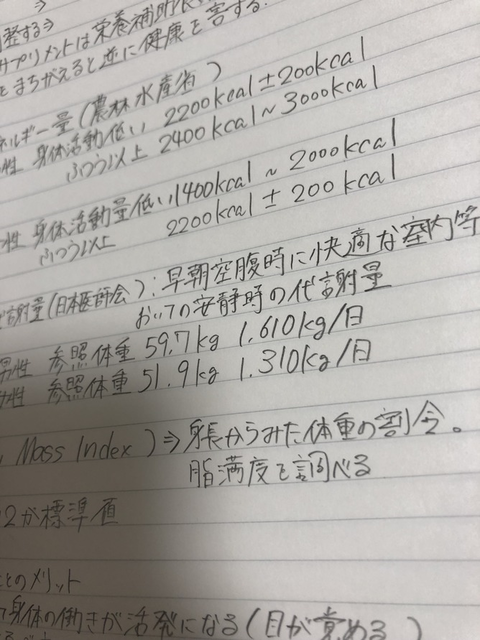 整する⇒
サプリメントは栄養補助
まちがえると逆に健康を害する。
ネルギー量(農林水産省)
性 身体活動低い 2200kcal±200kcal
ふつう以上 2400kcal~3000kcal
性 身体活動量低い1400kcal~2000kcal
ふつう以上 2200kcal±200kcal
謝量(日本医師会):早朝空腹時に快適な室内等
おいての安静時の代謝量
男性 参照体重 59.7kg 1.610kg/日
性 参照体重 51.9kg 1.310kg/日
Mass Index)⇒身長からみた体重の割合。
脂満度を調べる
2が標準値
とのメリット
身体の働きが活発になる(目が覚める)